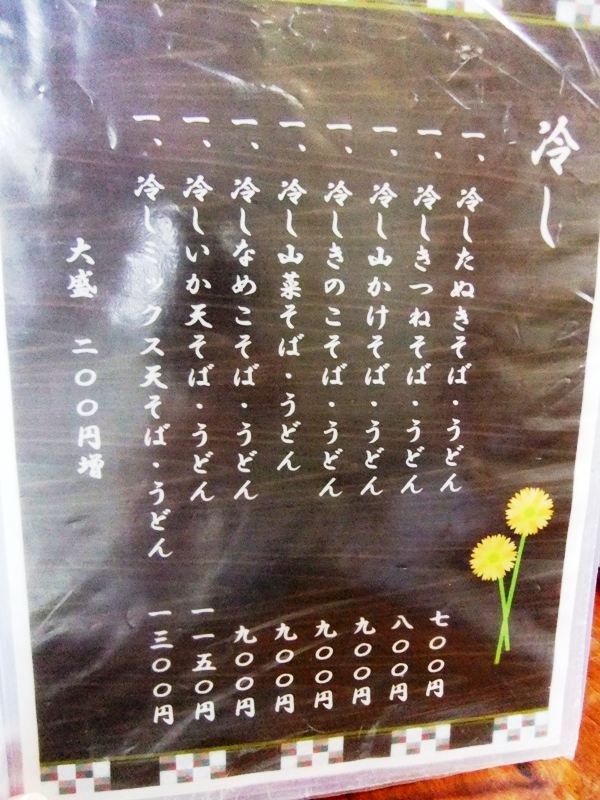 冷し
一、冷したぬきそば・うどん 七〇〇円
一、冷しきつねそば・うどん 八〇〇円
一、冷し山かけそば・うどん 九〇〇円
一、冷しきのこそば・うどん 九〇〇円
一、冷し山菜そば・うどん 九〇〇円
一、冷しなめこそば・うどん 九〇〇円
一、冷しいか天そば・うどん 一一五〇円
一、冷しミックス天そば・うどん 一三〇〇円
大盛 二〇〇円増